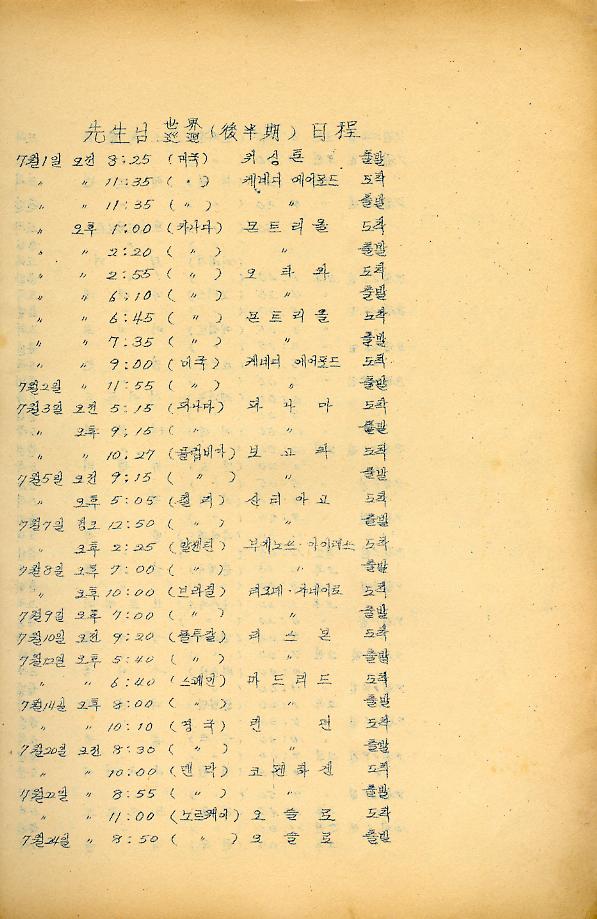 先生님 世界巡迴(後半期) 日程
7월1일 오전 8:25 (미국) 워싱톤 출발
〃 〃 11:35 (〃) 케네디 에어포드 도착
〃 〃 11:35 (〃) 〃 출발
〃 오후 1:00 (카나다) 몬트리올 도착
〃 〃 2:20 (〃) 〃 출발
〃 〃 2:55 (〃) 오타와 도착
〃 〃 6:10 (〃) 〃 출발
〃 〃 6:45 (〃) 몬트리올 도착
〃 〃 7:35 (〃) 출발
〃 〃 9:00 (미국) 케네디 에어포드 도착
7월2일 〃 11:55 (〃) 〃 출발
7월3일 오전 5:15 (파나마) 파나마 도착
〃 오후 9:15 (〃) 〃 출발
〃 〃 10:27 (콜럼비아) 보고타 도착
7월5일 오전 9:15 (〃) 〃 출발
〃 오후 5:05 (칠리) 산티아고 도착
7월7일 정오 12:50 (〃) 〃 출발
〃 오후 2:25 (알젠틴) 부에노쓰·아이레쓰 도착
7월8일 오후 7:00 (〃) 출발
〃 오후 10:00 (브라질) 리오데·자네이로 도착
7월9일 오후 7:00 (〃) 〃 출발
7월10일 오전 9:20 (폴투갈) 리스본 도착
7월12일 오후 5:40 (〃) 〃 출발
〃 〃 6:40 (스페인) 마드리드 도착
7월14일 오후 8:00 (〃) 〃 출발
〃 〃 10:10 (영국) 런던 도착
7월20일 오전 8:30 (〃) 〃 출발
〃 〃 10:00 (덴막) 코펜하겐 도착
7월22일 〃 8:55 (〃) 〃 출발
〃 〃 11:00 (노르웨이) 오슬로 도착
7월24일 〃 8:50 (〃) 오슬로 출발